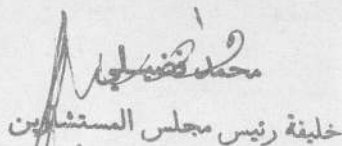 محمد
خليفة رئيس مجلس المستشارين